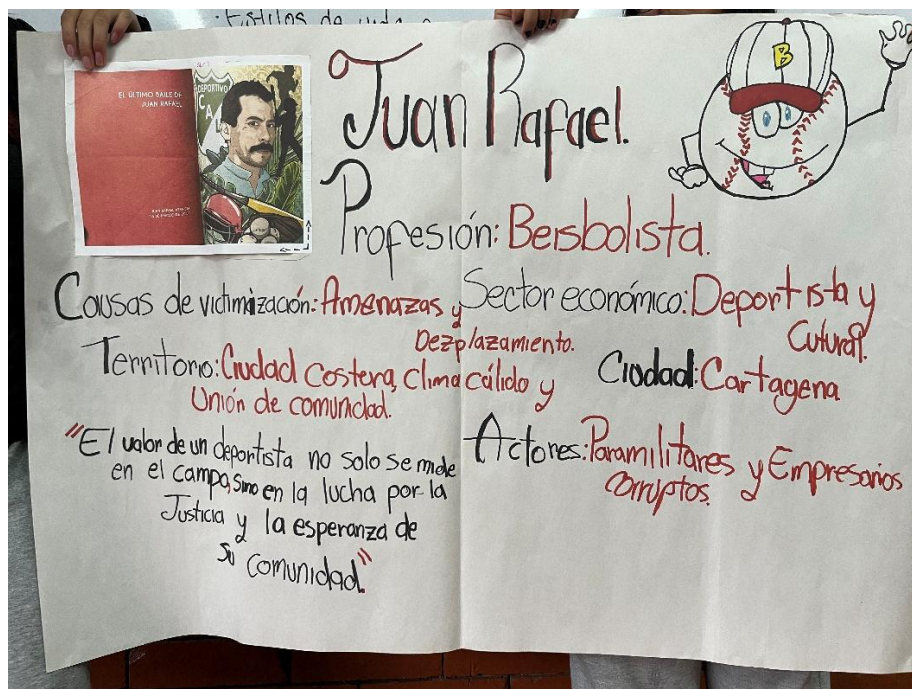 Estilos de vida
EL ÚLTIMO BAILE DE
JUAN RAFAEL
DEPORTIVO
CA
Juan Rafael.
B
Profesión: Beisbolista.
Causas de victimización: Amenazas y
Dezplazamiento.
Sector económico: Deportista y
Cutural.
Territorio: Ciudad costera, clima cálido y
Unión de comunidad.
Ciudad: Cartagena
"El valor de un deportista no solo se mide
en el campo, sino en la lucha por la
Justicia y la esperanza de
su comunidad."
Actores: Paramilitares y Empresarios
corruptos.